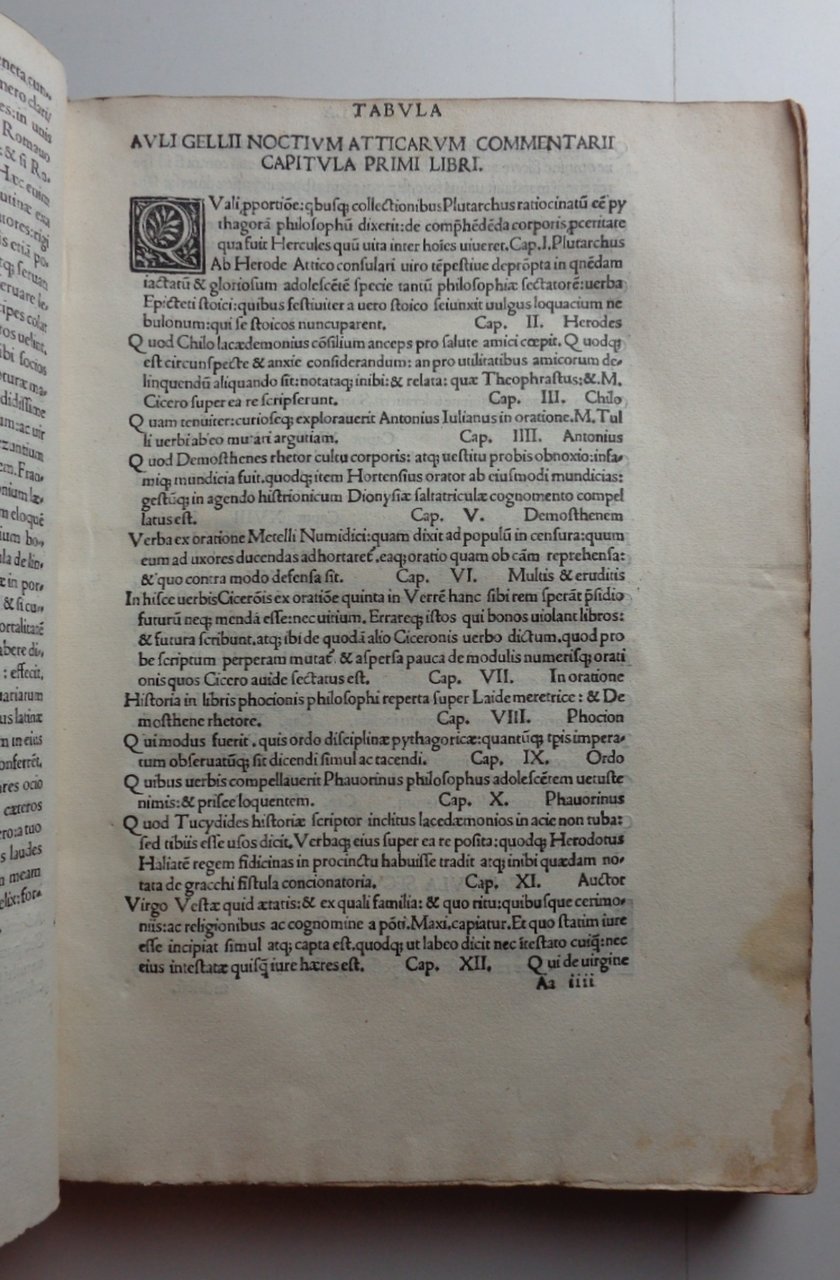 TABVLA
AVLI GELLII NOCTIVM ATTICARVM COMMENTARII
CAPITVLA PRIMI LIBRI.
QVali ꝓportiõe:qbusq; collectionibus Plutarchus ratiocinatũ eẽ py
thagorã philosophũ dixerit:de comp̃hẽdẽda corporis ꝓceritate
qua fuit Hercules quũ uita inter hoĩes uiueret.Cap.I.Plutarchus
Ab Herode Attico consulari uiro tẽpestiue deprõpta in qñedam
iactatũ & gloriosum adolescẽtẽ specie tantũ philosophiæ sectatorẽ:uerba
Epicteti stoici:quibus festiuiter a uero stoico seiunxit uulgus loquacium ne
bulonum:qui se stoicos nuncuparent. Cap. II. Herodes
Quod Chilo lacædemonius cõsilium anceps pro salute amici cœpit. Quodq;
est circunspecte & anxie considerandum: an pro utilitatibus amicorum de-
linquendũ aliquando sit:notataq; inibi:& relata: quæ Theophrastus:&.M.
Cicero super ea re scripserunt. Cap. III. Chilo
Quam tenuiter:curioseq; explorauerit Antonius Iulianus in oratione.M.Tul
li uerbi ab eo mutati argutiam. Cap. IIII. Antonius
Quod Demosthenes rhetor cultu corporis: atq; uestitu probis obnoxio:infa-
miq; mundicia fuit.quodq; item Hortensius orator ab eiusmodi mundicias:
gestũq; in agendo histrionicum Dionysiæ saltatriculæ cognomento compel
latus est. Cap. V. Demosthenem
Verba ex oratione Metelli Numidici:quam dixit ad populũ in censura:quum
eum ad uxores ducendas adhortaret᷑.eaq; oratio quam ob cãm reprehensa:
& quo contra modo defensa sit. Cap. VI. Multis & eruditis
In hisce uerbis Cicerõis ex oratiõe quinta in Verrẽ hanc sibi rem sperãt p̃sidio
futurũ neq; mendã esse:nec uitium. Errareq; istos qui bonos uiolant libros:
& futura scribunt.atq; ibi de quodã alio Ciceronis uerbo dictum.quod pro
be scriptum perperam mutat᷑ & aspersa pauca de modulis numerisq; orati
onis quos Cicero auide sectatus est. Cap. VII. In oratione
Historia in libris phocionis philosophi reperta super Laide meretrice : & De
mosthene rhetore. Cap. VIII. Phocion
Qui modus fuerit . quis ordo disciplinæ pythagoricæ:quantũq; tp̃is impera-
tum obseruatũq; sit dicendi simul ac tacendi. Cap. IX. Ordo
Quibus uerbis compellauerit Phauorinus philosophus adolescẽtem uetuste
nimis:& prisce loquentem. Cap. X. Phauorinus
Quod Tucydides historiæ scriptor inclitus lacedæmonios in acie non tuba:
sed tibiis esse usos dicit.Verbaq; eius super ea re posita:quodq; Herodotus
Haliatẽ regem fidicinas in procinctu habuisse tradit atq; inibi quædam no-
tata de gracchi fistula concionatoria. Cap. XI. Auctor
Virgo Vestæ quid ætatis:& ex quali familia: & quo ritu:quibusque cerimo-
niis:ac religionibus ac cognomine a põti.Maxi.capiatur.Et quo statim iure
esse incipiat simul atq; capta est.quodq; ut labeo dicit nec ĩtestato cuiq̃:nec
eius intestatæ quisq̃ iure hæres est. Cap. XII. Qui de uirgine
Aa iiii